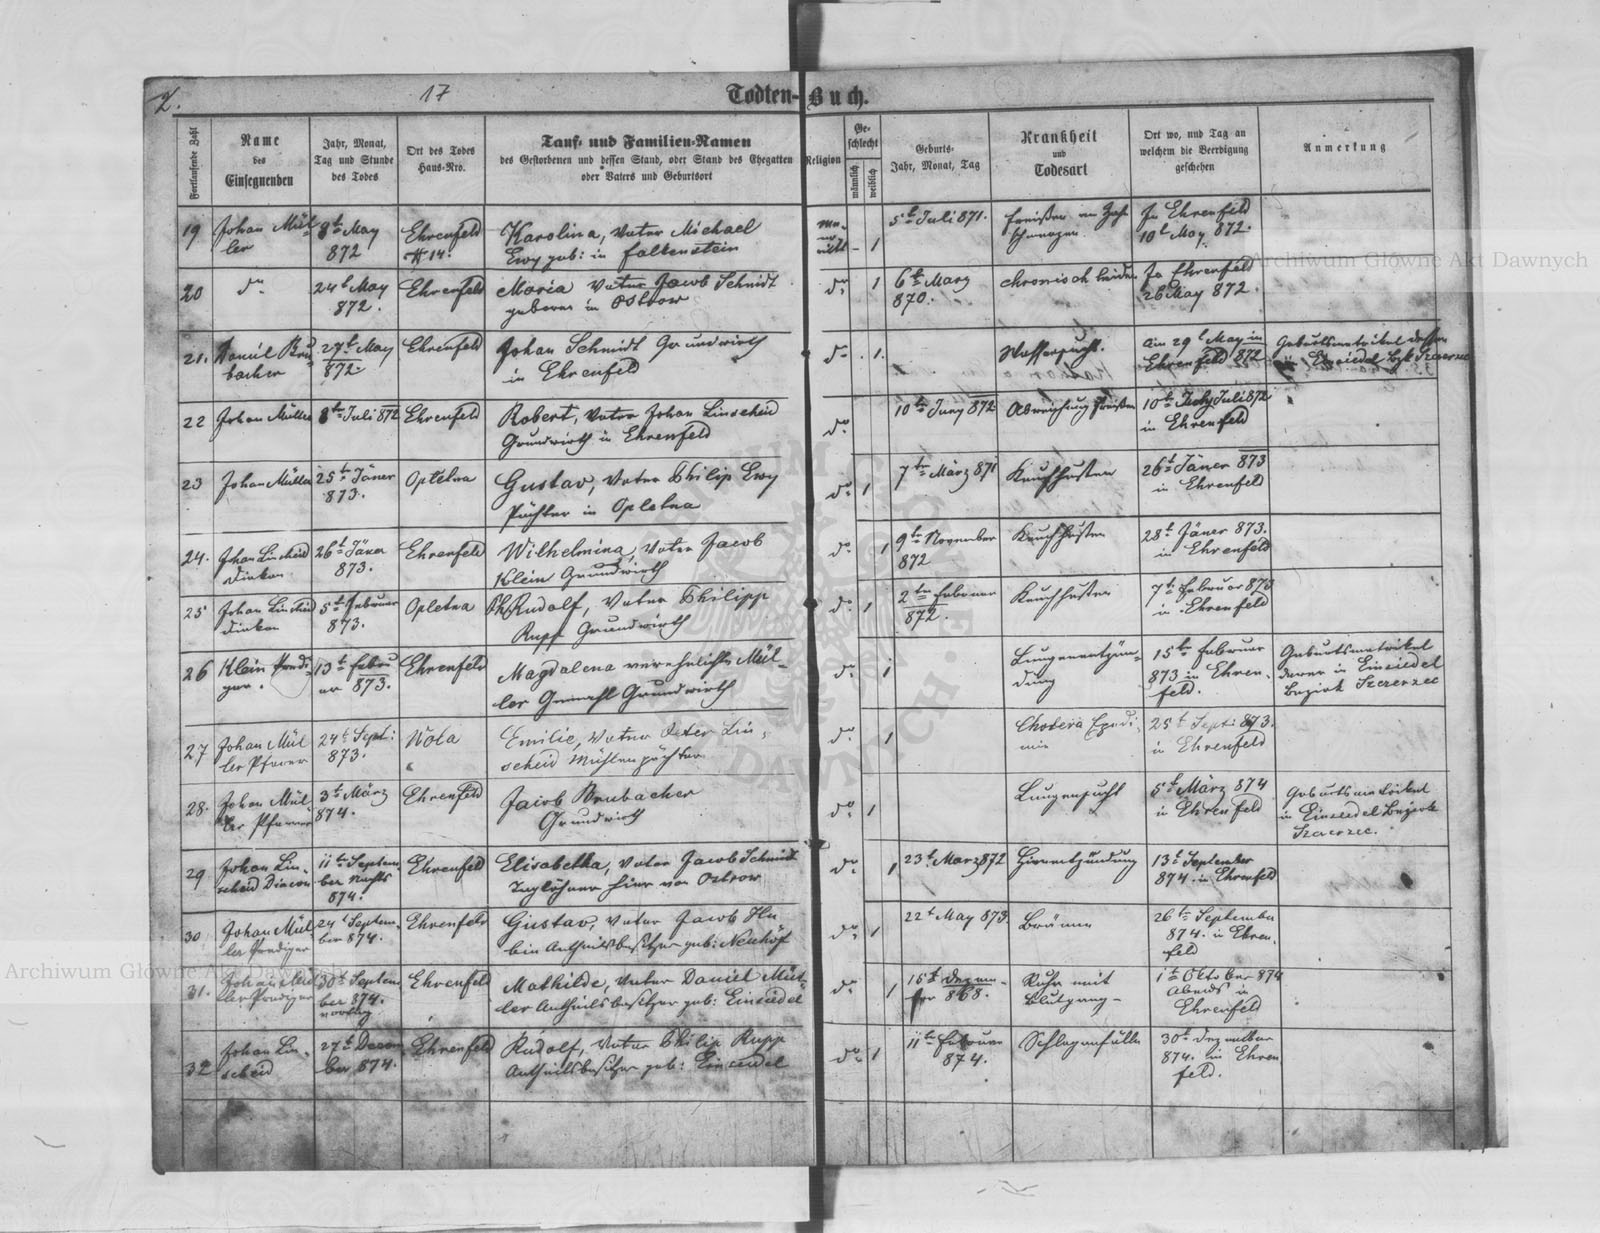 2.
17
Todten-Buch.
Fortlaufende Zahl
Name
des
Einsegnenden
Jahr, Monat,
Tag und Stunde
des Todes
Ort des Todes
Haus-Nro.
Tauf- und Familien-Namen
des Gestorbenen und dessen Stand, oder Stand des Ehegatten
oder Vaters und Geburtsort
Religion
Ge-
schlecht
männlich
weiblich
Geburts-
Jahr, Monat, Tag
Krankheit
und
Todesart
Ort wo, und Tag an
welchem die Beerdigung
geschehen
Anmerkung
19
Johan Mül-
ler
8te May
872
Ehrenfeld
# 14.
Karolina, Vater Michael
Ewy geb: in Falkenstein
- 1
5t Juli 871.
In Ehrenfeld
10t May 872.
20
do
24t May
872.
Ehrenfeld
Maria Vater Jacob Schmidt
geboren in Ostrow
do
1
6te März
870.
chronisch
In Ehrenfeld
26 May 872.
21.
Daniel Bru-
bacher
27t May
872.
Ehrenfeld
Johan Schmidt Grundwirth
in Ehrenfeld
do
1.
Wassersucht.
Am 29t May in
Ehrenfeld 872
Geburtsmatrikel dessen
in Einsiedel Bzk Szczerzec
22
Johan Müller
8te Juli 872
Ehrenfeld
Robert, Vater Johan Linscheid
Grundwirth in Ehrenfeld
do
10te Juny 872
Abweichung Freißen
10te Juli 872
in Ehrenfeld
23
Johan Müller
25t Jäner
873.
Opletna
Gustav, Vater Philip Ewy
Pächter in Opletna
do
1
7te März 871
Keuchhusten
26t Jäner 873
in Ehrenfeld
24.
Johan Linscheid
Diakon
26t Jäner
873.
Ehrenfeld
Wilhelmina, Vater Jacob
Klein Grundwirth
do
1
9te November
872
Keuchhusten
28t Jäner 873.
in Ehrenfeld
25
Johan Linscheid
Diakon
5t Februar
873.
Opletna
Rudolf, Vater Philipp
Rupp Grundwirth
do
1
2ten Februar
872.
Keuchhusten
7te Februar 873
in Ehrenfeld
26
Klein Predi-
ger.
13te Febru
ar 873.
Ehrenfeld
Magdalena verehelichte Mül-
ler Gemahl Grundwirth
do
1
Lungenentzün-
dung
15te Februar
873 in Ehren-
feld.
Geburtsmatrikel
derer in Einsiedel
Bezirk Szczerzec
27
Johan Mül
ler Pfarrer
24t Sept:
873.
Wola
Emilie, Vater Peter Lin-
scheid Mühlenpächter
do
1
Cholera Epedi-
mie
25t Sept: 873.
in Ehrenfeld
28.
Johan Mül-
ler Pfarrer
3te März
874.
Ehrenfeld
Jacob Brubacher
Grundwirth
do
1
Lungensucht
5te März 874
in Ehrenfeld
Geburtsmatrikel
in Einsiedel Bezirk
Szczerzec.
29
Johan Lin-
scheid Diacon
11te Septem-
ber Nachts
874.
Ehrenfeld
Elisabetha, Vater Jacob Schmidt
Taglöhner hier von Ostrow
do
1
23t März 872
Hirnentzündung
13t September
874. in Ehrenfeld
30
Johan Mül-
ler Prediger
24t Septem-
ber 874.
Ehrenfeld
Gustav, Vater Jacob Hu
bin Antheilsbesitzer geb: Neuhof
do
1
22t May 873.
Bräune
26te September
874. in Ehren-
feld
31.
Johan Mül-
ler Prediger
30t Septem-
ber 874.
Ehrenfeld
Mathilde, Vater Daniel Mül-
ler Antheilsbesitzer geb: Einsiedel
do
1
15t Dezem-
ber 868.
Ruhr mit
Blutgang-
1te Oktober 874
Abends in
Ehrenfeld
32
Johan Lin-
scheid
27t Dezem-
ber 874.
Ehrenfeld
Rudolf, Vater Philip Rupp
Antheilsbesitzer geb: Einsiedel
do
1
11te Februar
874.
Schlaganfälle
30t Dezember
874. in Ehren
feld.
Archiwum Główne Akt Dawnych
Archiwum Główne Akt Dawnych